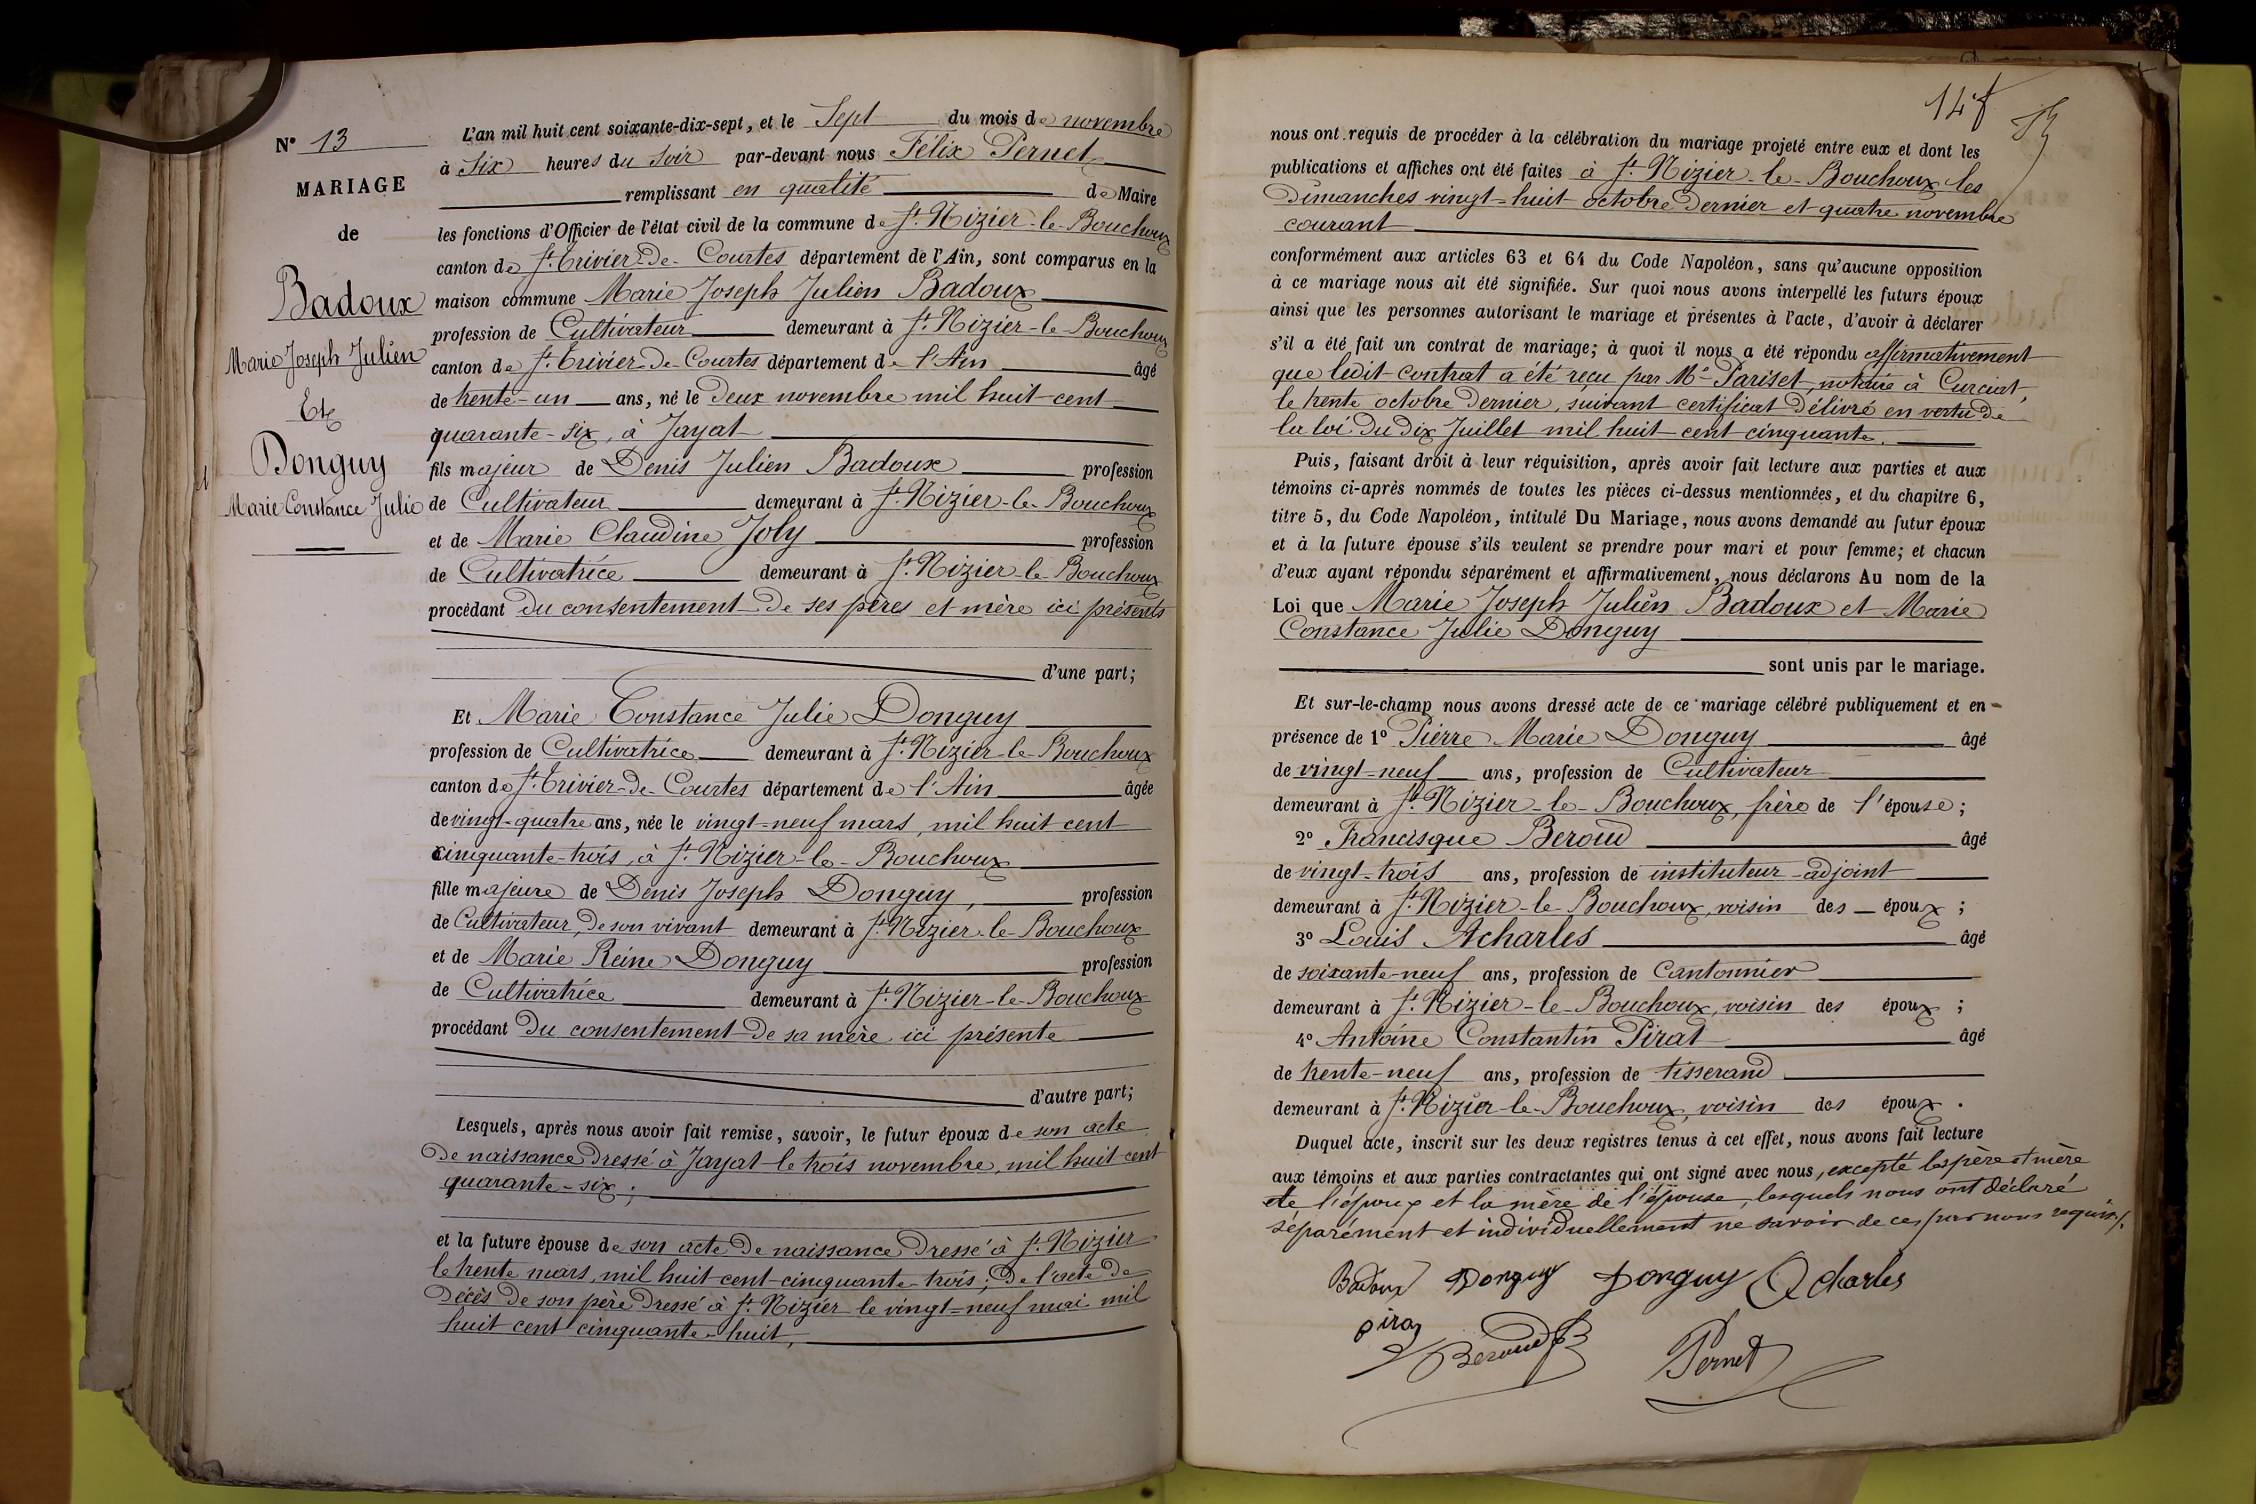 N° 13
MARIAGE
de
Badoux
Marie Joseph Julien
Et
Donguy
Marie Constance Julie
L'an mil huit cent soixante-dix-sept, et le Sept du mois de novembre
à Six heures du Soir par-devant nous Félix Pernet
remplissant en qualité de Maire
les fonctions d'Officier de l'état civil de la commune de St. Nizier-le-Bouchoux
canton de St. Trivier-de-Courtes département de l'Ain, sont comparus en la
maison commune Marie Joseph Julien Badoux
profession de Cultivateur demeurant à St. Nizier-le-Bouchoux
canton de St. Trivier-de-Courtes département de l'Ain âgé
de trente-un ans, né le deux novembre mil huit cent
quarante-six, à Jayat
fils majeur de Denis Julien Badoux profession
de Cultivateur demeurant à St. Nizier-le-Bouchoux
et de Marie Claudine Joly profession
de Cultivatrice demeurant à St. Nizier-le-Bouchoux
procédant du consentement de ses pères et mère ici présents
d'une part;
Et Marie Constance Julie Donguy
profession de Cultivatrice demeurant à St. Nizier-le-Bouchoux
canton de St. Trivier-de-Courtes département de l'Ain âgée
de vingt-quatre ans, née le vingt-neuf mars, mil huit cent
cinquante-trois, à St. Nizier-le-Bouchoux
fille majeure de Denis Joseph Donguy, profession
de Cultivateur, de son vivant demeurant à St. Nizier-le-Bouchoux
et de Marie Reine Donguy profession
de Cultivatrice demeurant à St. Nizier-le-Bouchoux
procédant du consentement de sa mère ici présente
d'autre part;
Lesquels, après nous avoir fait remise, savoir, le futur époux de son acte
de naissance dressé à Jayat le trois novembre, mil huit cent
quarante-six;
et la future épouse de son acte de naissance dressé à St. Nizier
le trente mars, mil huit cent cinquante-trois; de l'acte de
décès de son père dressé à St. Nizier le vingt-neuf mai mil
huit cent cinquante-huit,
nous ont requis de procéder à la célébration du mariage projeté entre eux et dont les
publications et affiches ont été faites à St. Nizier-le-Bouchoux les
dimanches vingt-huit octobre dernier et quatre novembre
courant
conformément aux articles 63 et 64 du Code Napoléon, sans qu'aucune opposition
à ce mariage nous ait été signifiée. Sur quoi nous avons interpellé les futurs époux
ainsi que les personnes autorisant le mariage et présentes à l'acte, d'avoir à déclarer
s'il a été fait un contrat de mariage; à quoi il nous a été répondu affirmativement
que ledit contrat a été reçu par Me Pariset notaire à Curciat,
le trente octobre dernier, suivant certificat délivré en vertu de
la loi du dix Juillet mil huit cent cinquante.
Puis, faisant droit à leur réquisition, après avoir fait lecture aux parties et aux
témoins ci-après nommés de toutes les pièces ci-dessus mentionnées, et du chapitre 6,
titre 5, du Code Napoléon, intitulé Du Mariage, nous avons demandé au futur époux
et à la future épouse s'ils veulent se prendre pour mari et pour femme; et chacun
d'eux ayant répondu séparément et affirmativement, nous déclarons Au nom de la
Loi que Marie Joseph Julien Badoux et Marie
Constance Julie Donguy
sont unis par le mariage.
Et sur-le-champ nous avons dressé acte de ce mariage célébré publiquement et en
présence de 1° Pierre Marie Donguy âgé
de vingt-neuf ans, profession de Cultivateur
demeurant à St. Nizier-le-Bouchoux, frère de l'épouse;
2° Francisque Beroud âgé
de vingt-trois ans, profession de instituteur-adjoint
demeurant à St. Nizier-le-Bouchoux, voisin des époux;
3° Louis Acharles âgé
de soixante-neuf ans, profession de Cantonnier
demeurant à St. Nizier-le-Bouchoux, voisin des époux;
4° Antoine Constantin Pirat âgé
de trente-neuf ans, profession de tisserand
demeurant à St. Nizier-le-Bouchoux, voisin des époux.
Duquel acte, inscrit sur les deux registres tenus à cet effet, nous avons fait lecture
aux témoins et aux parties contractantes qui ont signé avec nous, excepté les père et mère
de l'époux et la mère de l'épouse, lesquels nous ont déclaré
séparément et individuellement ne savoir de ce par nous requis.
Badoux Donguy Donguy Acharles
pirat
Béroud Pernet